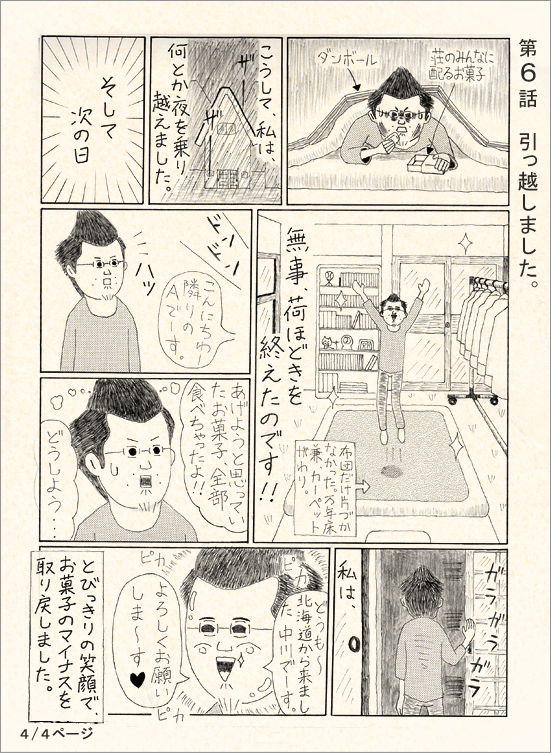 第6話　引っ越しました。
荘のみんなに
配るお菓子
ダンボール
こうして、私は、
何とか夜を乗り
越えました。
ザー
ザー
そして
次の日
無事、荷ほどきを
終えたのです!!
布団だけ片づか
なかった。万年床
兼、カーペット
がわり。
ドン
ドン
ハッ
こんにちわ
隣りの
Aでーす。
あげようと思ってい
たお菓子、全部
食べちゃったよ!!
どうしよう…
ガラガラ
ガラ
私は、
どうも〜
北海道から来まし
た中川でーす。
よろしくお願い
しま〜す♥
ピカ
ピカ
ピカ
とびっきりの笑顔で、
お菓子のマイナスを
取り戻しました。
4/4ページ